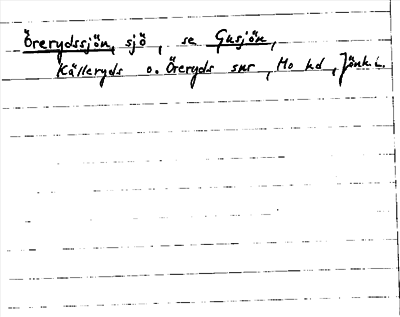 Örerydssjön, sjö, se Gusjön,
Källeryds o. Öreryds snr, Mo hd, Jönk.l.